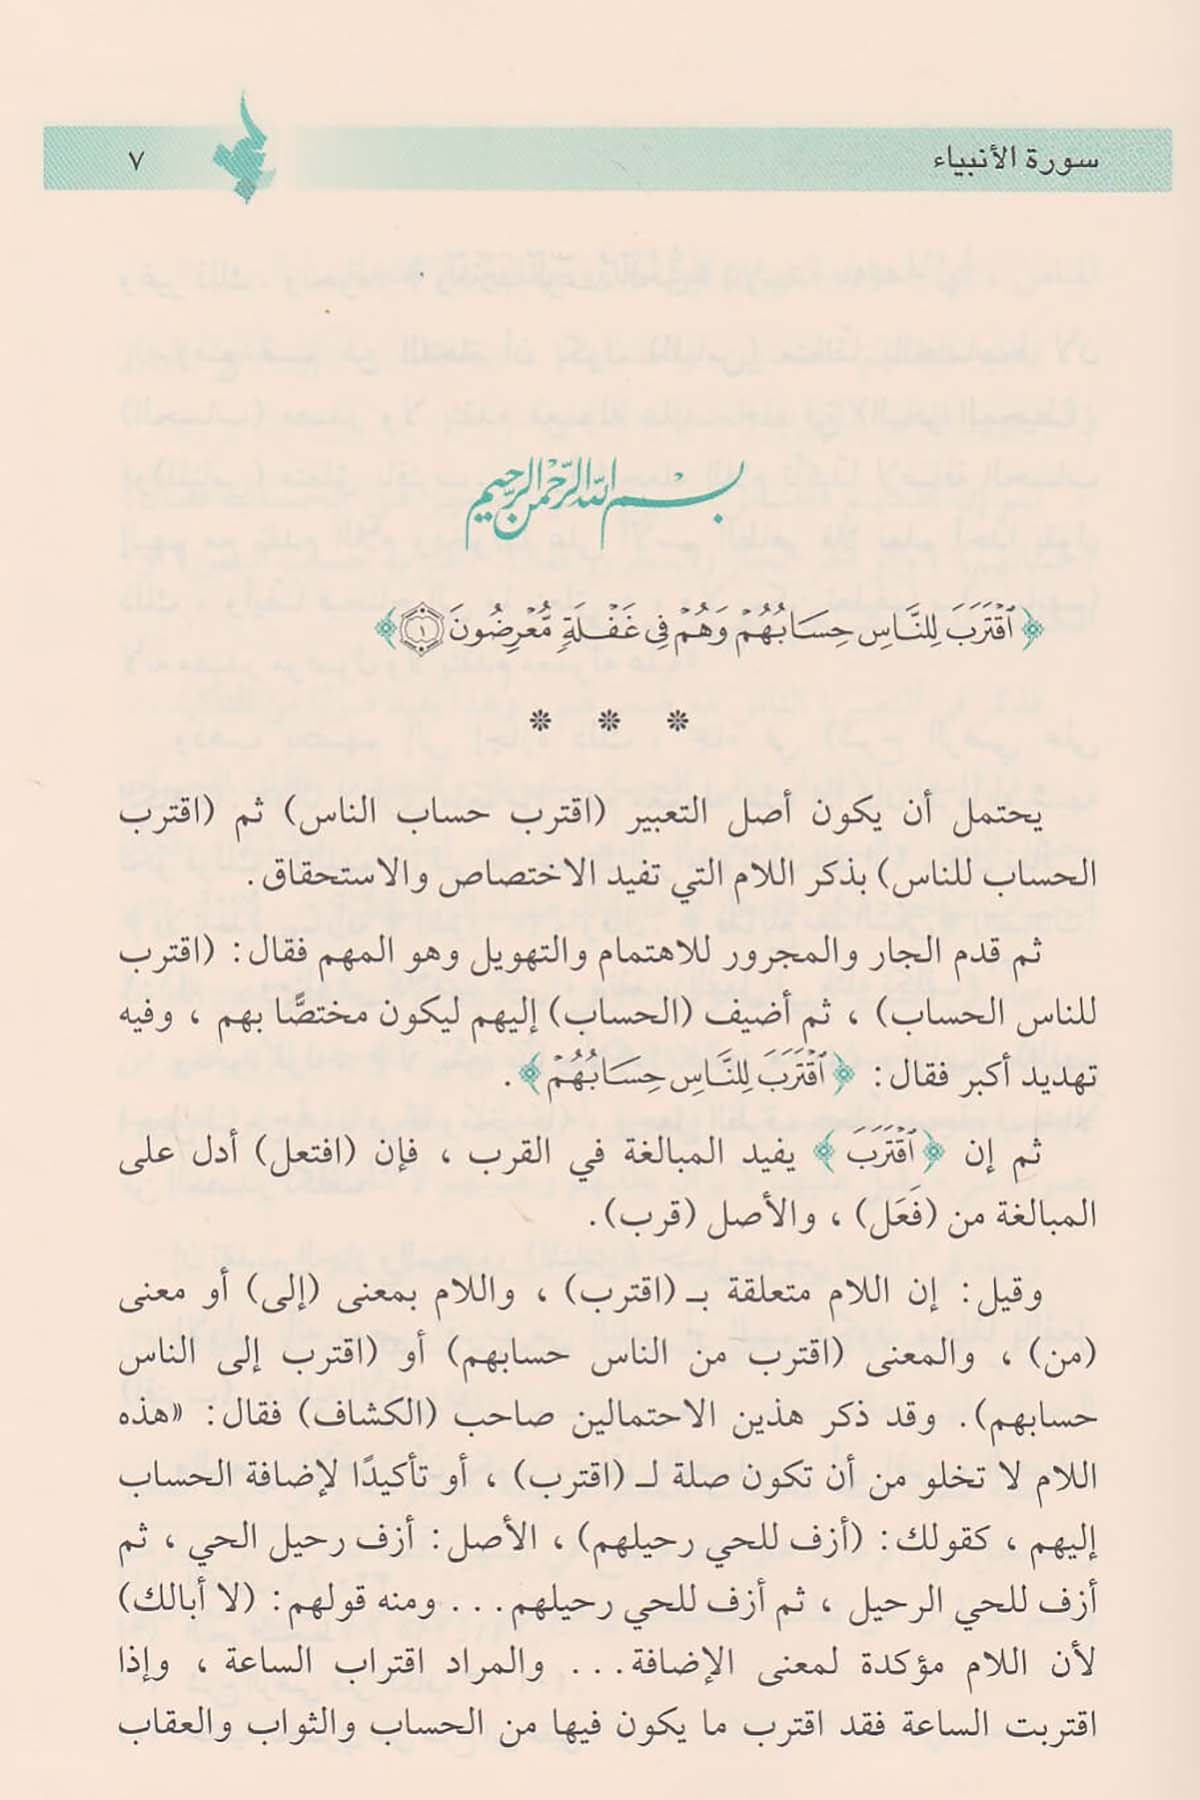 سورة الأنبياء ٧
بسم الله الرحمن الرحيم
﴿ٱقۡتَرَبَ لِلنَّاسِ حِسَابُهُمۡ وَهُمۡ فِي غَفۡلَةٖ مُّعۡرِضُونَ ١﴾
* * *
يحتمل أن يكون أصل التعبير (اقترب حساب الناس) ثم (اقترب
الحساب للناس) بذكر اللام التي تفيد الاختصاص والاستحقاق.
ثم قدم الجار والمجرور للاهتمام والتهويل وهو المهم فقال: (اقترب
للناس الحساب) ، ثم أضيف (الحساب) إليهم ليكون مختصًّا بهم ، وفيه
تهديد أكبر فقال: ﴿ٱقۡتَرَبَ لِلنَّاسِ حِسَابُهُمۡ﴾.
ثم إن ﴿ٱقۡتَرَبَ﴾ يفيد المبالغة في القرب ، فإن (افتعل) أدل على
المبالغة من (فَعَل) ، والأصل (قرب).
وقيل: إن اللام متعلقة بـ (اقترب) ، واللام بمعنى (إلى) أو معنى
(من) ، والمعنى (اقترب من الناس حسابهم) أو (اقترب إلى الناس
حسابهم). وقد ذكر هذين الاحتمالين صاحب (الكشاف) فقال: «هذه
اللام لا تخلو من أن تكون صلة لـ (اقترب) ، أو تأكيدًا لإضافة الحساب
إليهم ، كقولك: (أزف للحي رحيلهم) ، الأصل: أزف رحيل الحي ، ثم
أزف للحي الرحيل ، ثم أزف للحي رحيلهم... ومنه قولهم: (لا أبالك)
لأن اللام مؤكدة لمعنى الإضافة... والمراد اقتراب الساعة ، وإذا
اقتربت الساعة فقد اقترب ما يكون فيها من الحساب والثواب والعقاب